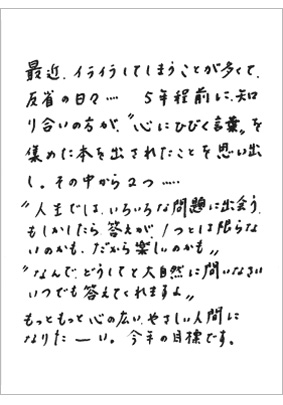 最近、イライラしてしまうことが多くて、
反省の日々…… 5年程前に、知
り合いの方が、〝心にひびく言葉〟を
集めた本を出されたことを思い出
し。その中から2つ……
〝人生では、いろいろな問題に出会う、
もしかしたら、答えが、1つとは限らな
いのかも、だから楽しいのかも〟
〝なんで、どうしてと大自然に問いなさい
いつでも答えてくれますよ〟
もっともっと心の広い、やさしい人間に
なりたーい。今年の目標です。